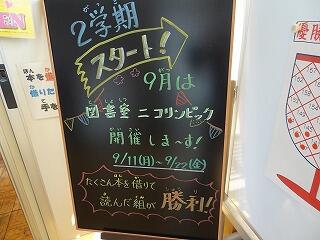 2学期
スタート!
9月は
図書室 ニコリンピック
開催しま〜す!
9/11(月)〜9/22(金)
たくさん本を借りて
読んだ組が 勝利!
ほん
本を
借りた
手を
優勝